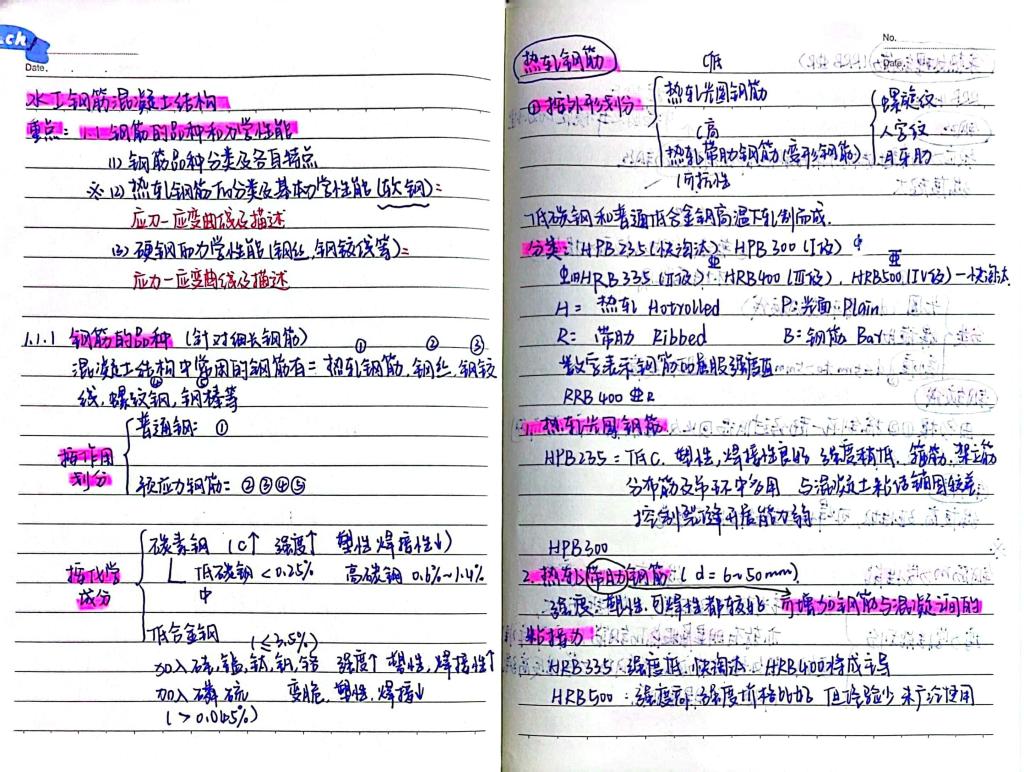 ch
Date.
水工钢筋混凝土结构
重点: 1.1 钢筋的品种和力学性能
(1) 钢筋品种分类及各自特点
※ (2) 热轧钢筋的分类及基本力学性能(软钢):
应力-应变曲线及描述
(3) 硬钢筋力学性能(钢丝,钢铰线等):
应力-应变曲线及描述
1.1.1 钢筋的品种 (针对细长钢筋)
① ② ③
混凝土结构中常用的钢筋有: 热轧钢筋,钢丝,钢铰
线,螺纹钢,钢棒等
④ ⑤
按作用划分
普通钢: ①
预应力钢筋: ②③④⑤
按化学成分
碳素钢 (C↑ 强度↑ 塑性焊接性↓)
低碳钢<0.25% 高碳钢 0.6%~1.4%
中
低合金钢
(≤3.5%)
加入硅,锰,钛,钒,铬 强度↑ 塑性,焊接性↑
加入磷硫 变脆,塑性,焊接↓
(>0.045%)
No.
Date.
热轧钢筋
C低
①按外形划分
热轧光圆钢筋
C高
热轧带肋钢筋(变形钢筋)
可抗性
螺旋纹
人字纹
月牙肋
低碳钢和普通低合金钢高温下轧制而成.
分类: HPB235(快淘汰) HPB300(I级) ϕ
HRB335(II级), HRB400(III级), HRB500(IV级)-快淘汰
H= 热轧 Hotrolled P:光面 Plain
R: 带肋 Ribbed B:钢筋 Bar
数字表示钢筋的屈服强度值
RRB400 R
1. 热轧光圆钢筋
HPB235: 低C. 塑性,焊接性良好 强度稍低. 箍筋,架立筋
分布筋及吊环中多用 与混凝土粘结锚固较差,
控制裂缝开展能力弱
HPB300
2. 热轧带肋钢筋 (d=6~50mm)
强度 塑性,可焊性都较好 可增加钢筋与混凝之间的
粘接力
HRB335 强度低,快淘汰. HRB400将成主导
HRB500: 强度高,强度价格比好 但经验少 未广泛使用